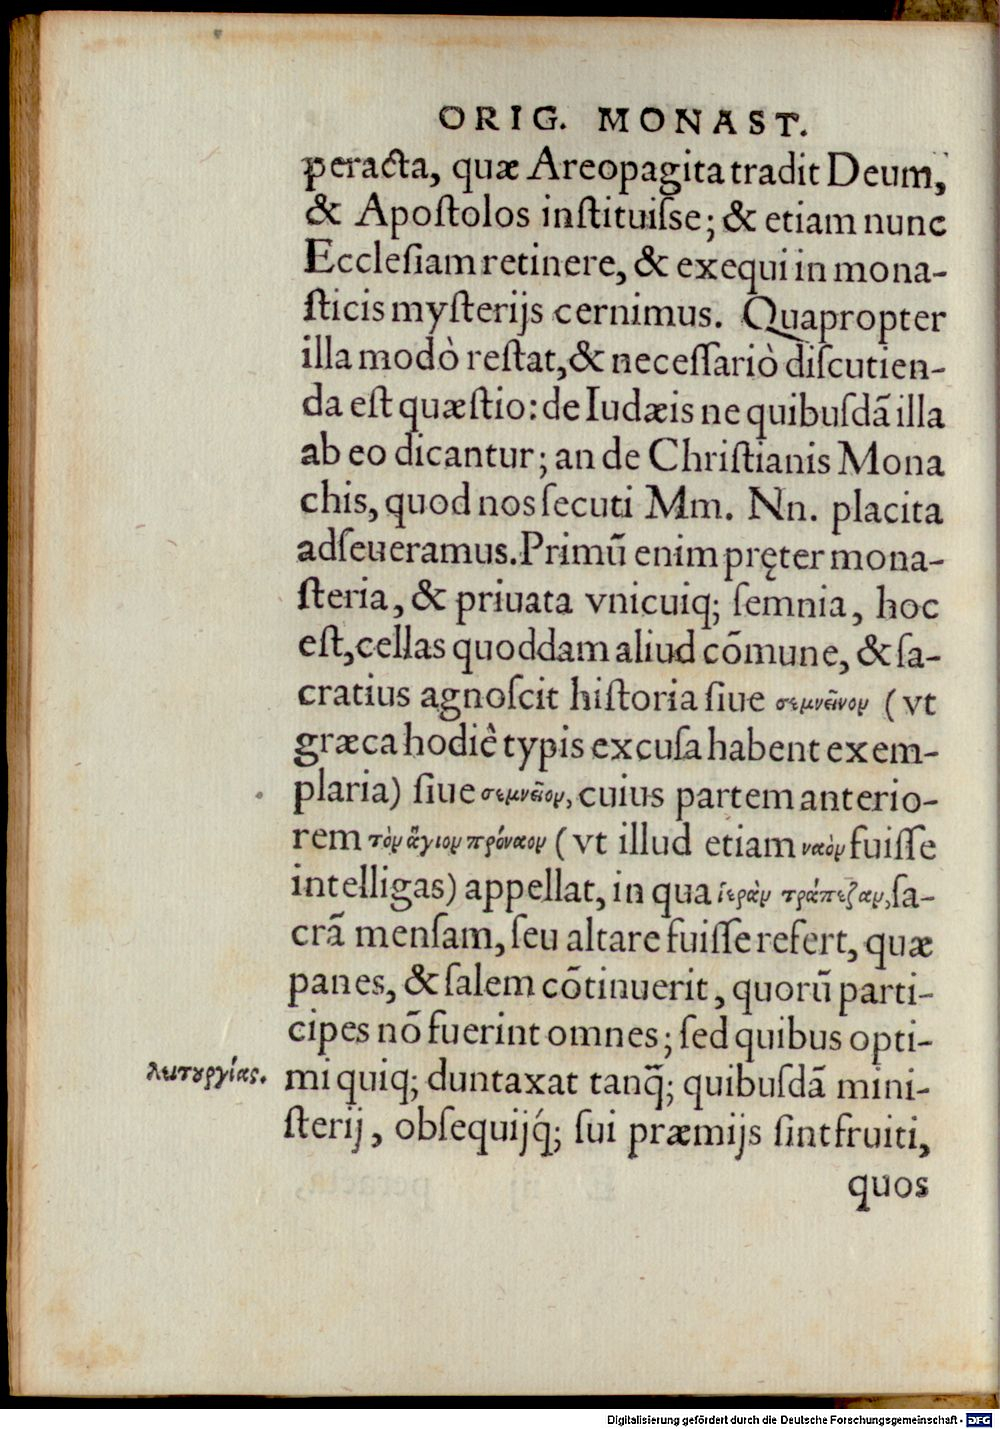 ORIG. MONAST.
peracta, quæ Areopagita tradit Deum,
& Apoſtolos inſtituiſse; & etiam nunc
Eccleſiam retinere, & exequi in mona-
ſticis myſterijs cernimus. Quapropter
illa modò reſtat, & neceſſariò diſcutien-
da eſt quæſtio: de Iudæis ne quibuſdã illa
ab eo dicantur; an de Chriſtianis Mona
chis, quod nos ſecuti Mm. Nn. placita
adſeueramus. Primũ enim pręter mona-
ſteria, & priuata vnicuiq; ſemnia, hoc
eſt, cellas quoddam aliud cõmune, & ſa-
cratius agnoſcit hiſtoria ſiue σεμνεῖνον (vt
græca hodiè typis excuſa habent exem-
plaria) ſiue σεμνεῖον, cuius partem anterio-
rem τὸν ἅγιον πρόναον (vt illud etiam ναὸν fuiſſe
intelligas) appellat, in qua ἱερὰν τράπεζαν, ſa-
crã menſam, ſeu altare fuiſſe refert, quæ
panes, & ſalem cõtinuerit, quorũ parti-
cipes nõ fuerint omnes; ſed quibus opti-
λειτουργίας. mi quiq; duntaxat tanq̃; quibuſdã mini-
ſterij, obſequijq́; ſui præmijs ſint fruiti,
quos
Digitalisierung gefördert durch die Deutsche Forschungsgemeinschaft - DFG